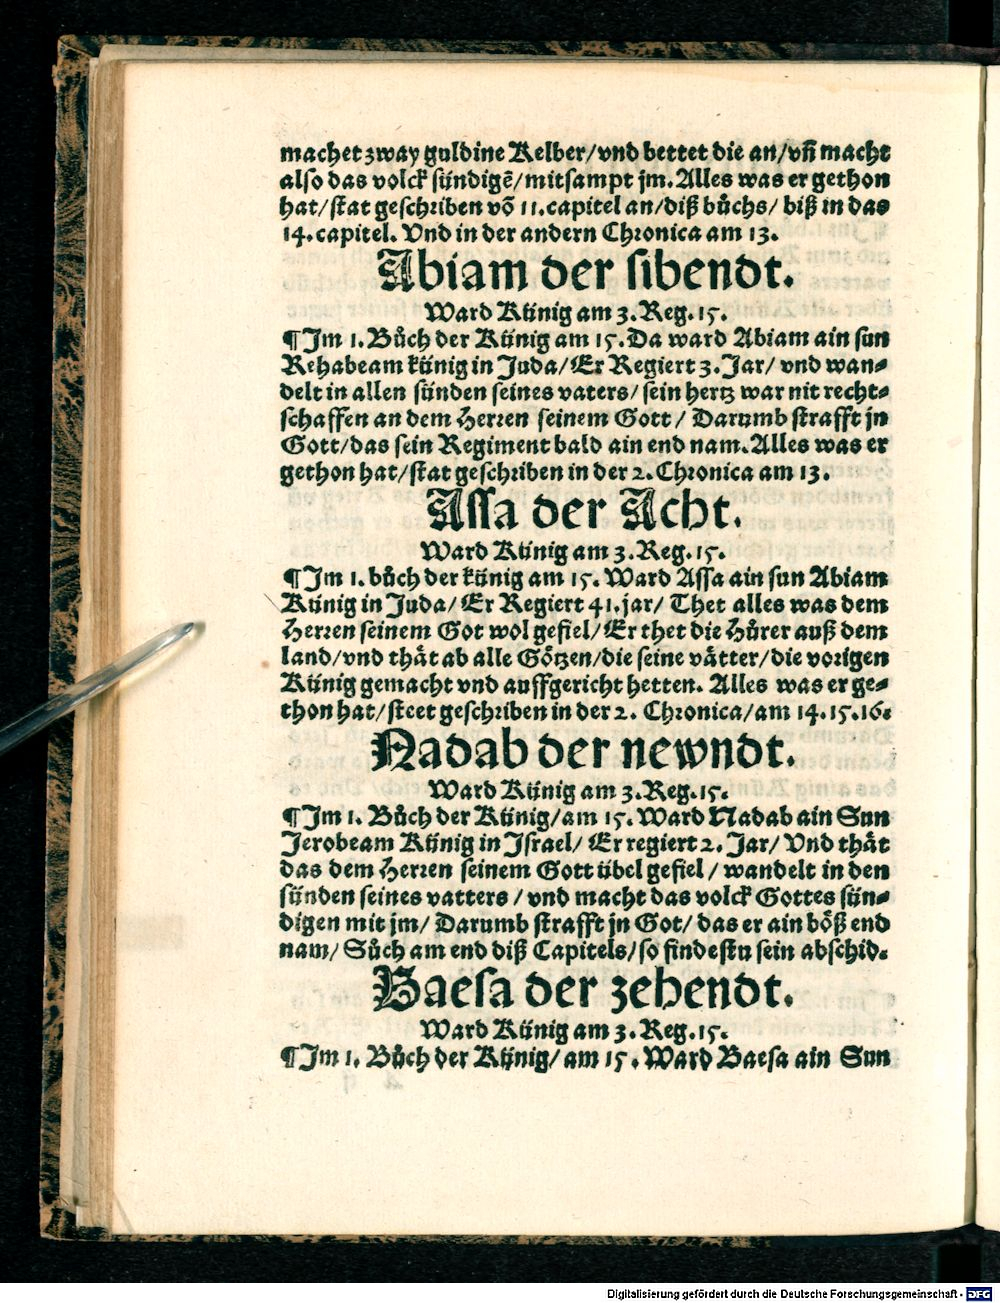 machet zway guldine Kelber/vnd bettet die an/vn̄ macht
also das volck sündigē/mitsampt jm. Alles was er gethon
hat/stat geschriben võ 11. capitel an/diß bůchs/ biß in das
14. capitel. Vnd in der andern Chronica am 13.
Abiam der sibendt.
Ward Künig am 3. Reg. 15.
¶ Im 1. Bůch der Künig am 15. Da ward Abiam ain sun
Rehabeam künig in Juda/ Er Regiert 3. Jar/ vnd wan-
delt in allen sünden seines vaters/ sein hertz war nit recht-
schaffen an dem Herren seinem Gott / Darumb strafft jn
Gott/das sein Regiment bald ain end nam. Alles was er
gethon hat/stat geschriben in der 2. Chronica am 13.
Assa der Acht.
Ward Künig am 3. Reg. 15.
¶ Im 1. bůch der künig am 15. Ward Assa ain sun Abiam
Künig in Juda/ Er Regiert 41. jar/ Thet alles was dem
Herren seinem Got wol gefiel/ Er thet die Hůrer auß dem
land/vnd thät ab alle Götzen/die seine vätter/die vorigen
Künig gemacht vnd auffgericht hetten. Alles was er ge-
thon hat/steet geschriben in der 2. Chronica/am 14. 15. 16.
Nadab der newndt.
Ward Künig am 3. Reg. 15.
¶ Im 1. Bůch der Künig/am 15. Ward Nadab ain Sun
Jerobeam Künig in Israel/ Er regiert 2. Jar/ Vnd thät
das dem Herren seinem Gott übel gefiel / wandelt in den
sünden seines vatters / vnd macht das volck Gottes sün-
digen mit jm/ Darumb strafft jn Got/ das er ain böß end
nam/ Sůch am end diß Capitels/so findestu sein abschid.
Baesa der zehendt.
Ward Künig am 3. Reg. 15.
¶ Im 1. Bůch der Künig/ am 15. Ward Baesa ain Sun
Digitalisierung gefördert durch die Deutsche Forschungsgemeinschaft - DFG